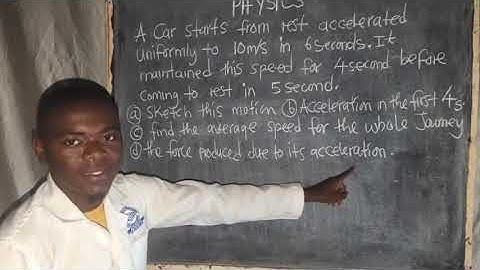 PHYSICS
A Car starts from rest accelerated
Uniformly to 10m/s in 6seconds. It
maintained this speed for 4second before
Coming to rest in 5second.
ⓐ Sketch this motion ⓑ Acceleration in the first 4s.
ⓒ find the average speed for the whole Journey
ⓓ the force produced due to its acceleration.